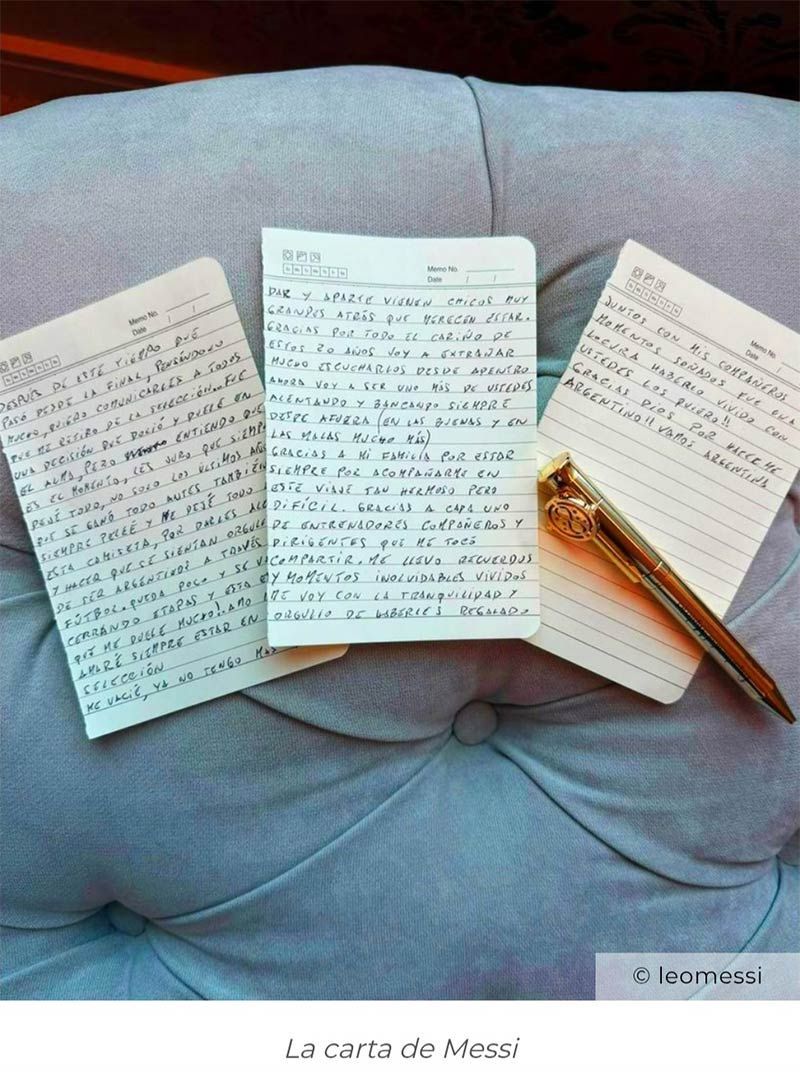 Memo No.
Date / /
DESPUÉS DE ESTE TIEMPO QUE
PASÓ DESDE LA FINAL, PENSÁNDOLO
MUCHO, QUIERO COMUNICARLES A TODOS
QUE ME RETIRO DE LA SELECCIÓN. FUE
UNA DECISIÓN QUE DOLIÓ Y DUELE EN
EL ALMA, PERO ENTIENDO QUE
ES EL MOMENTO, LES JURO QUE SIEMPRE
DEJÉ TODO, NO SOLO LOS ÚLTIMOS AÑOS
QUE SE GANÓ TODO ANTES TAMBIÉN
SIEMPRE PELEÉ Y ME DEJÉ TODO
ESTA CAMISETA, POR DARLES ALE
Y HACER QUE SE SIENTAN ORGULL
DE SER ARGENTINOS A TRAVÉS
FÚTBOL. QUEDA POCO Y SE VA
CERRANDO ETAPAS Y ESTA E
QUE ME DUELE MUCHO! AMO
AMARÉ SIEMPRE ESTAR EN
SELECCIÓN
ME VACIÉ, YA NO TENGO MÁS
Memo No.
Date / /
Su Mo Tu We Th Fr Sa
DAR Y APARTE VIENEN CHICOS MUY
GRANDES ATRÁS QUE MERECEN ESTAR.
GRACIAS POR TODO EL CARIÑO DE
ESTOS 20 AÑOS VOY A EXTRAÑAR
MUCHO ESCUCHARLOS DESDE ADENTRO
AHORA VOY A SER UNO MÁS DE USTEDES
ALENTANDO Y BANCANDO SIEMPRE
DESDE AFUERA (EN LAS BUENAS Y EN
LAS MALAS MUCHO MÁS)
GRACIAS A MI FAMILIA POR ESTAR
SIEMPRE POR ACOMPAÑARME EN
ESTE VIAJE TAN HERMOSO PERO
DIFÍCIL. GRACIAS A CADA UNO
DE ENTRENADORES COMPAÑEROS Y
DIRIGENTES QUE ME TOCÓ
COMPARTIR. ME LLEVO RECUERDOS
Y MOMENTOS INOLVIDABLES VIVIDOS
ME VOY CON LA TRANQUILIDAD Y
ORGULLO DE HABERLES REGALADO
Memo No.
Date / /
JUNTOS CON MIS COMPAÑEROS
MOMENTOS SOÑADOS FUE UNA
LOCURA HABERLO VIVIDO CON
USTEDES LOS QUIERO!!
GRACIAS DIOS POR HACERME
ARGENTINO!! VAMOS ARGENTINA
© leomessi
La carta de Messi